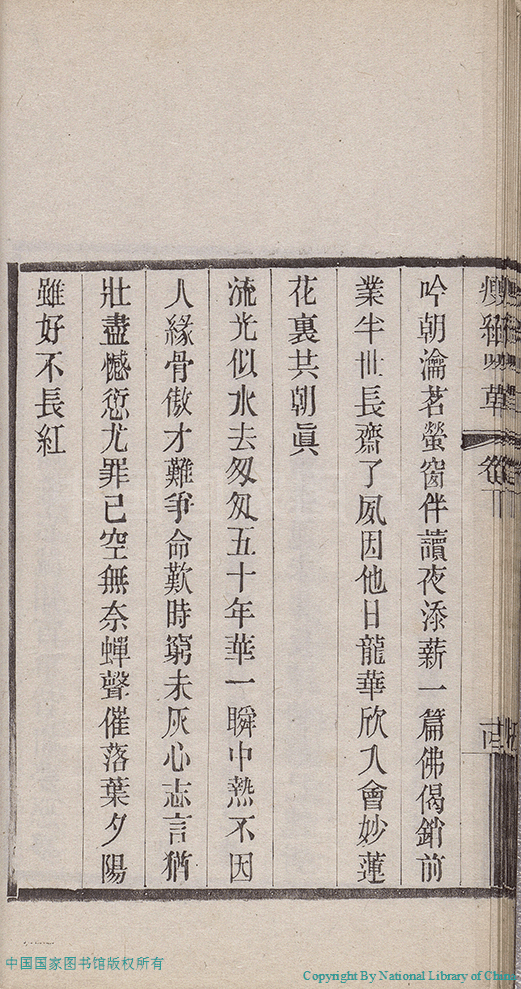 吟朝瀹茗螢窗伴讀夜添薪一篇佛偈銷前
業半世長齋了夙因他日龍華欣入會妙蓮
花裏共朝眞
流光似水去匆匆五十年華一瞬中熱不因
人緣骨傲才難爭命歎時窮未灰心志言猶
壯盡憾愆尤罪已空無奈蟬聲催落葉夕陽
雖好不長紅
中国国家图书馆版权所有
Copyright By National Library of China